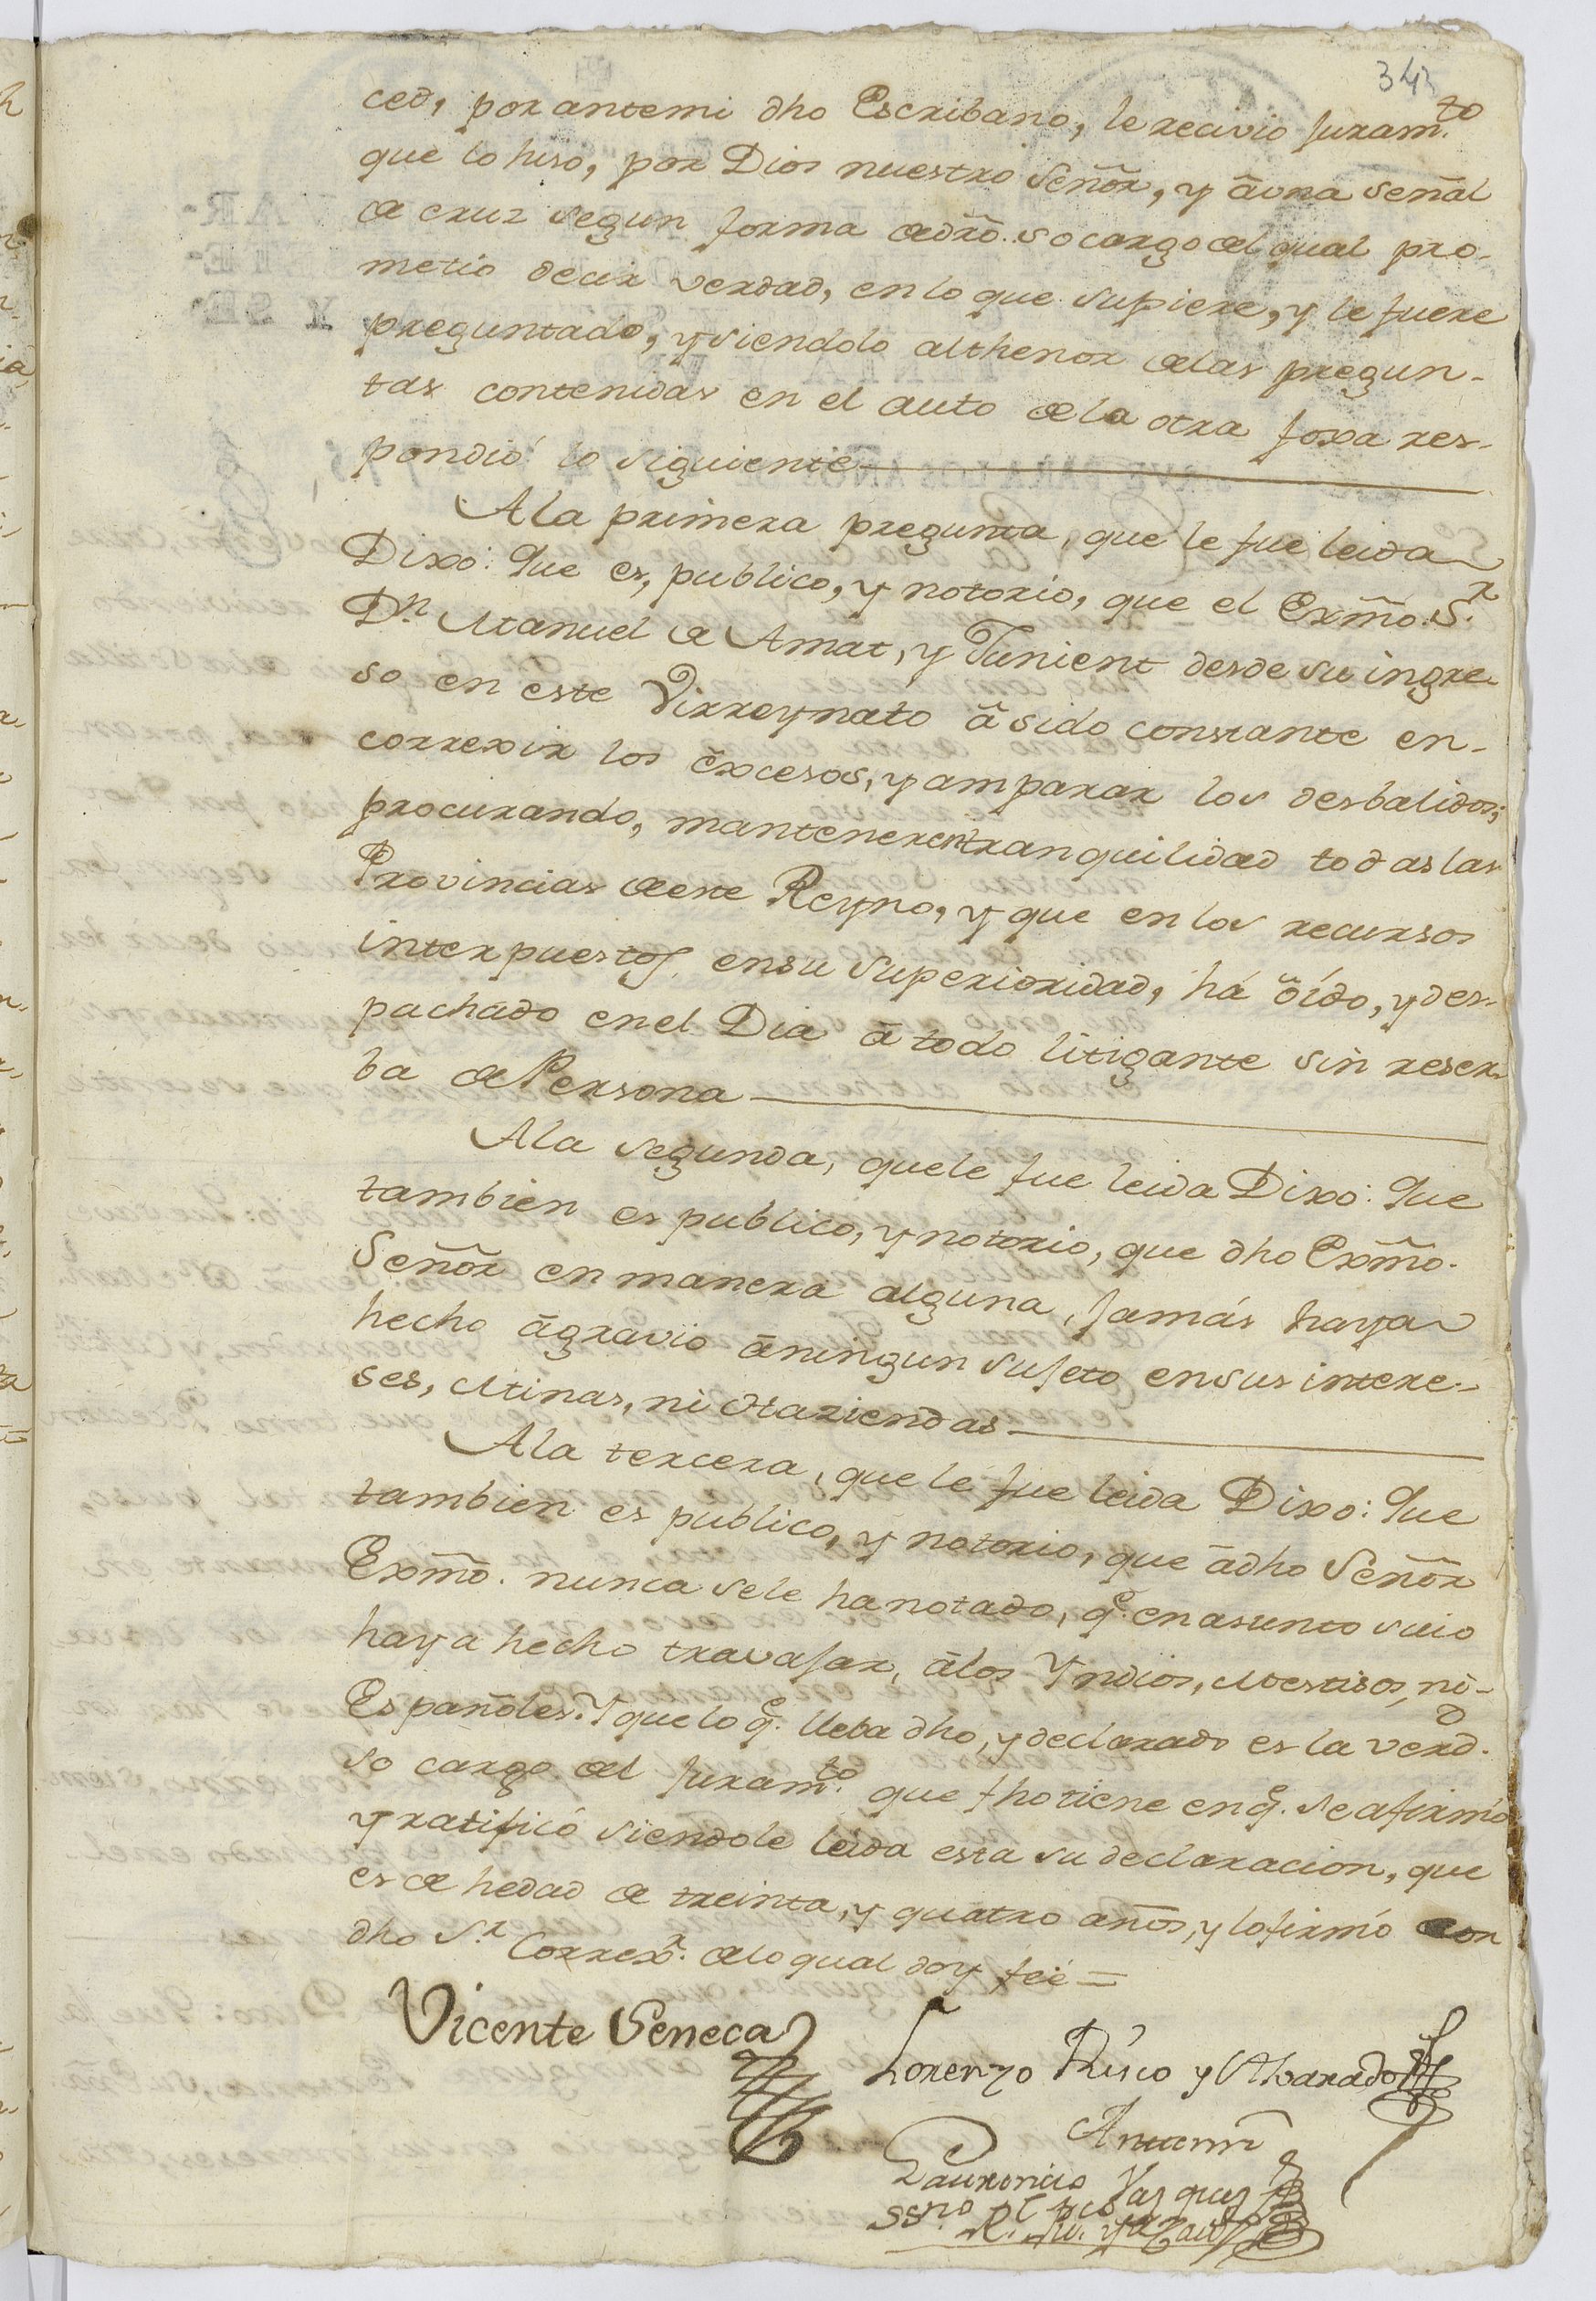 343
ced, por antemi dho Escribano, le recivio Juram.to
que lo hiso, por Dios nuestro Señor, y â una señal
de cruz segun forma de dro. so cargo del qual pro-
metio decir verdad, en lo que supiere, y le fuere
preguntado, y siendolo althenor de las pregun-
tas contenidas en el auto de la otra foxa res-
pondió lo siguiente
A la primera pregunta, que le fue leida
Dixo: Que es, publico, y notorio, que el Exmo. S.r
D.n Manuel de Amat, y Junient desde su ingre-
so en este Virreynato â sido constante en-
correxir los êxcesos, y amparar los desbalidos;
procurando, mantener en tranquilidad todas las
Provincias de este Reyno, y que en los recursos
interpuestos ensu superioridad, há ôído, y des-
pachado en el Dia â todo litigante sin reser-
ba de Persona
A la segunda, que le fue leida Dixo: Que
tambien es publico, y notorio, que dho Exmo.
Señor en manera alguna, Jamás haya
hecho âgravio âningun suJeto ensus intere-
ses, Minas, ni Haziendas
A la tercera, que le fue leida Dixo: Que
tambien es publico, y notorio, que âdho Señor
Exmo. nunca sele ha notado, q.e en asunto suio
haya hecho travaJar, âlos Yndios, Mestisos, ni-
Españoles. Y que lo q.e lleba dho, y declarado es la verd.d
so cargo del Juram.to que fho tiene en q.e se afirmó
y ratificó siendole leida esta su declaracion, que
es de hedad de treinta, y quatro años, y lo firmó con
dho S.r Correx.r de lo qual doy feé =
Vicente Seneca
Lorenzo Risco y Alvarado
Antemi
Laurencio Vasquez
SSno